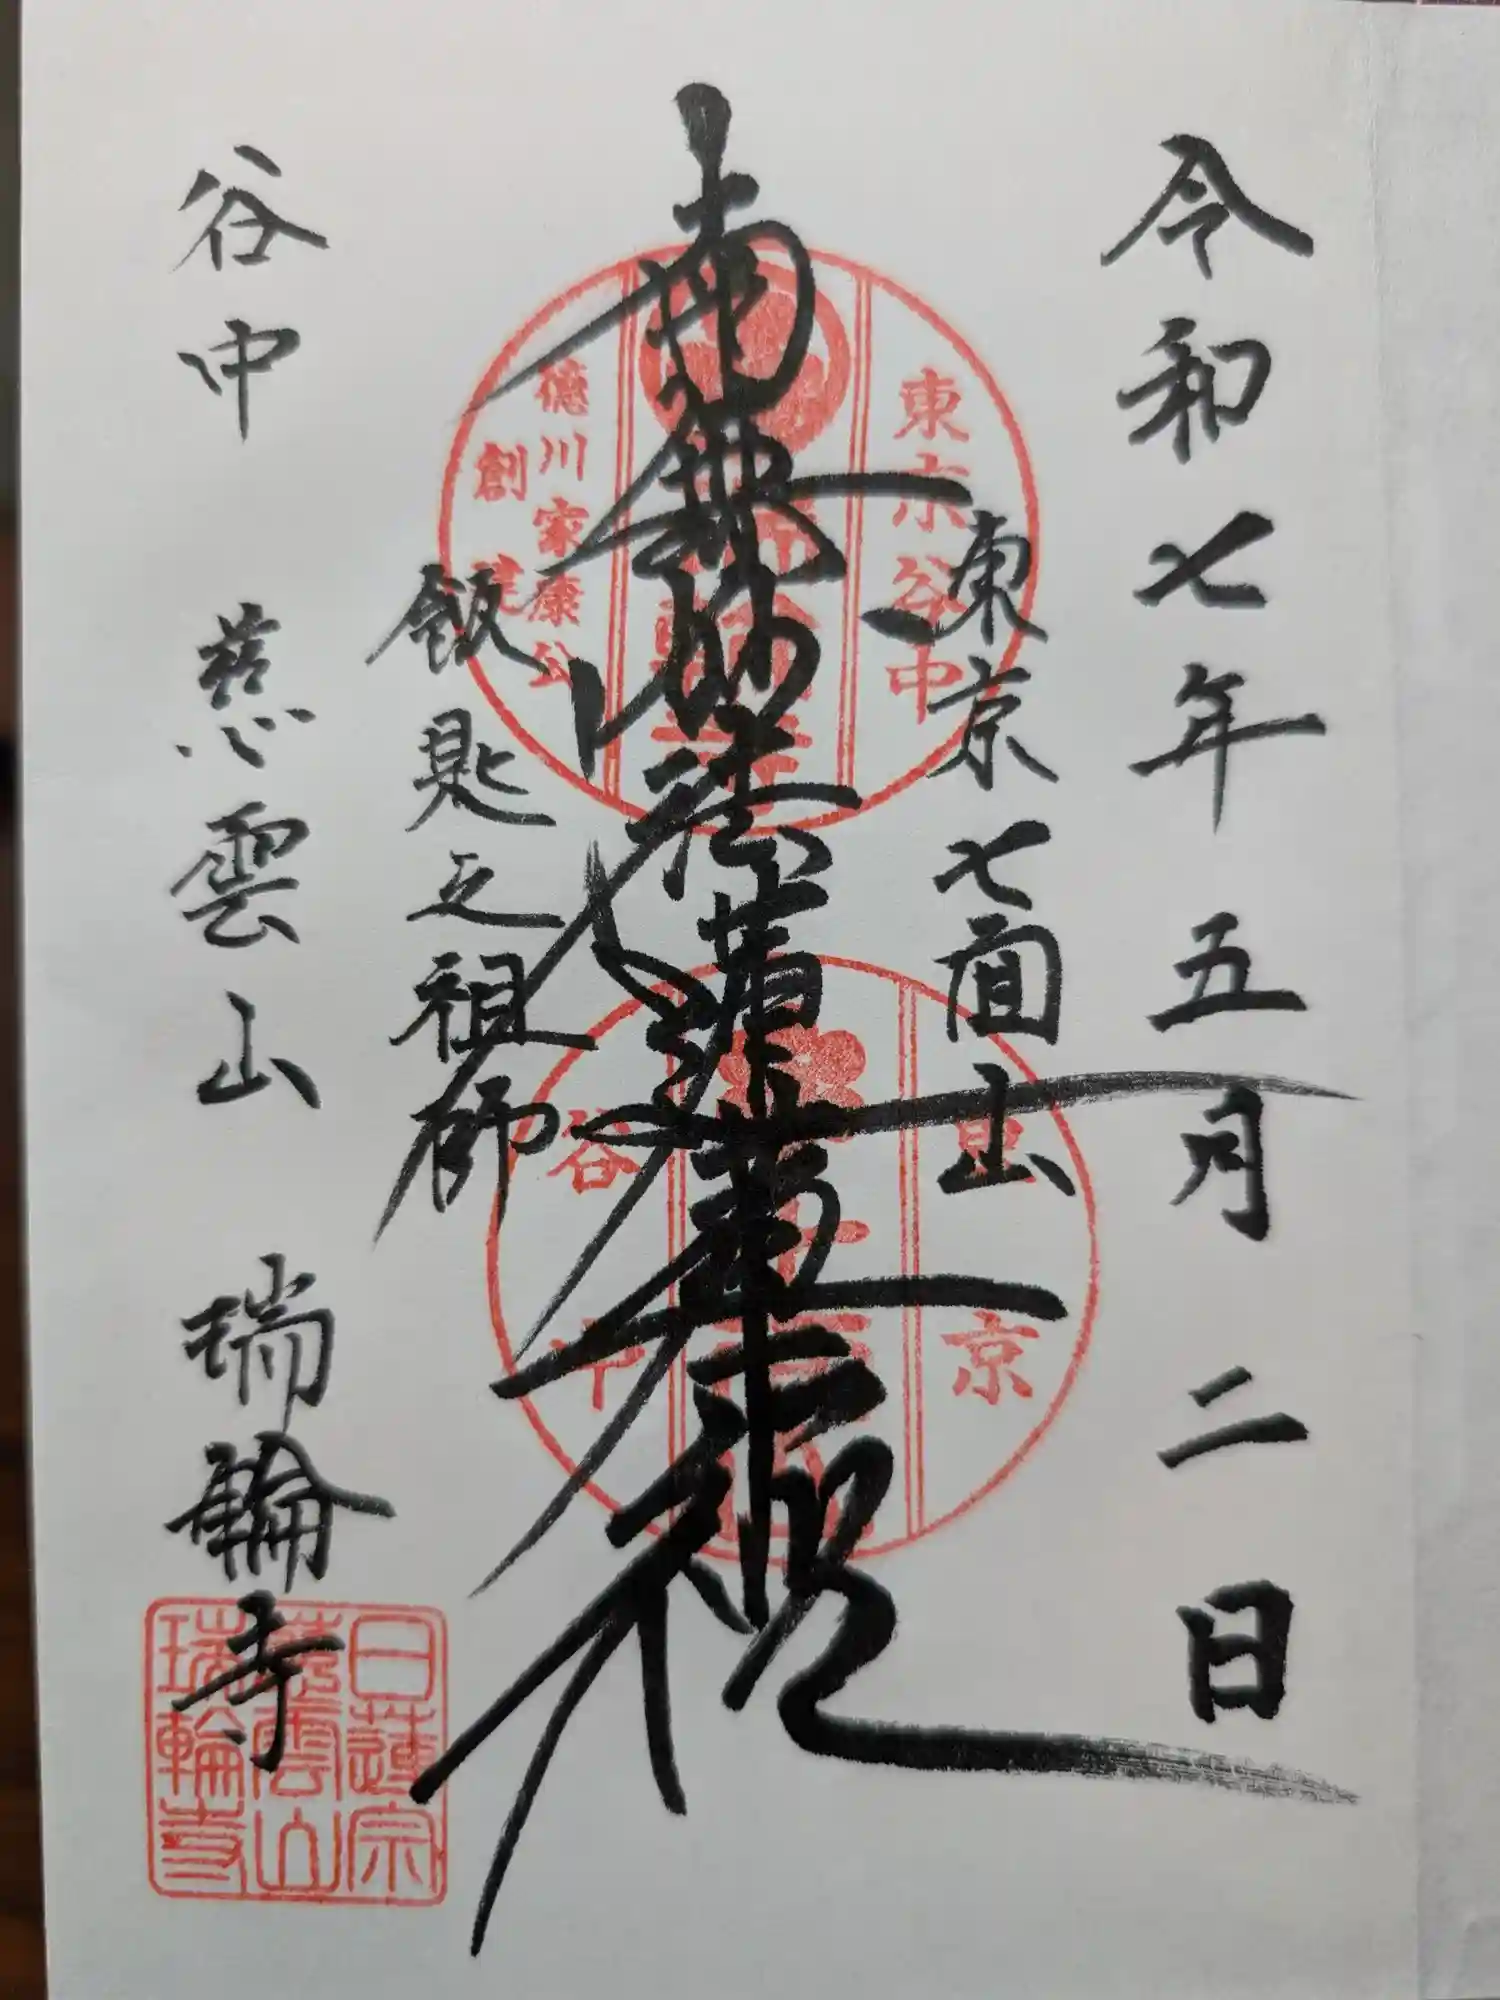 令和七年五月二日
東京七面山
南無妙法蓮華経
飯匙之祖師
谷中 慈雲山 瑞輪寺
東京谷中
徳川家康公
創建
東京
谷中
日蓮宗
慈雲山
瑞輪寺